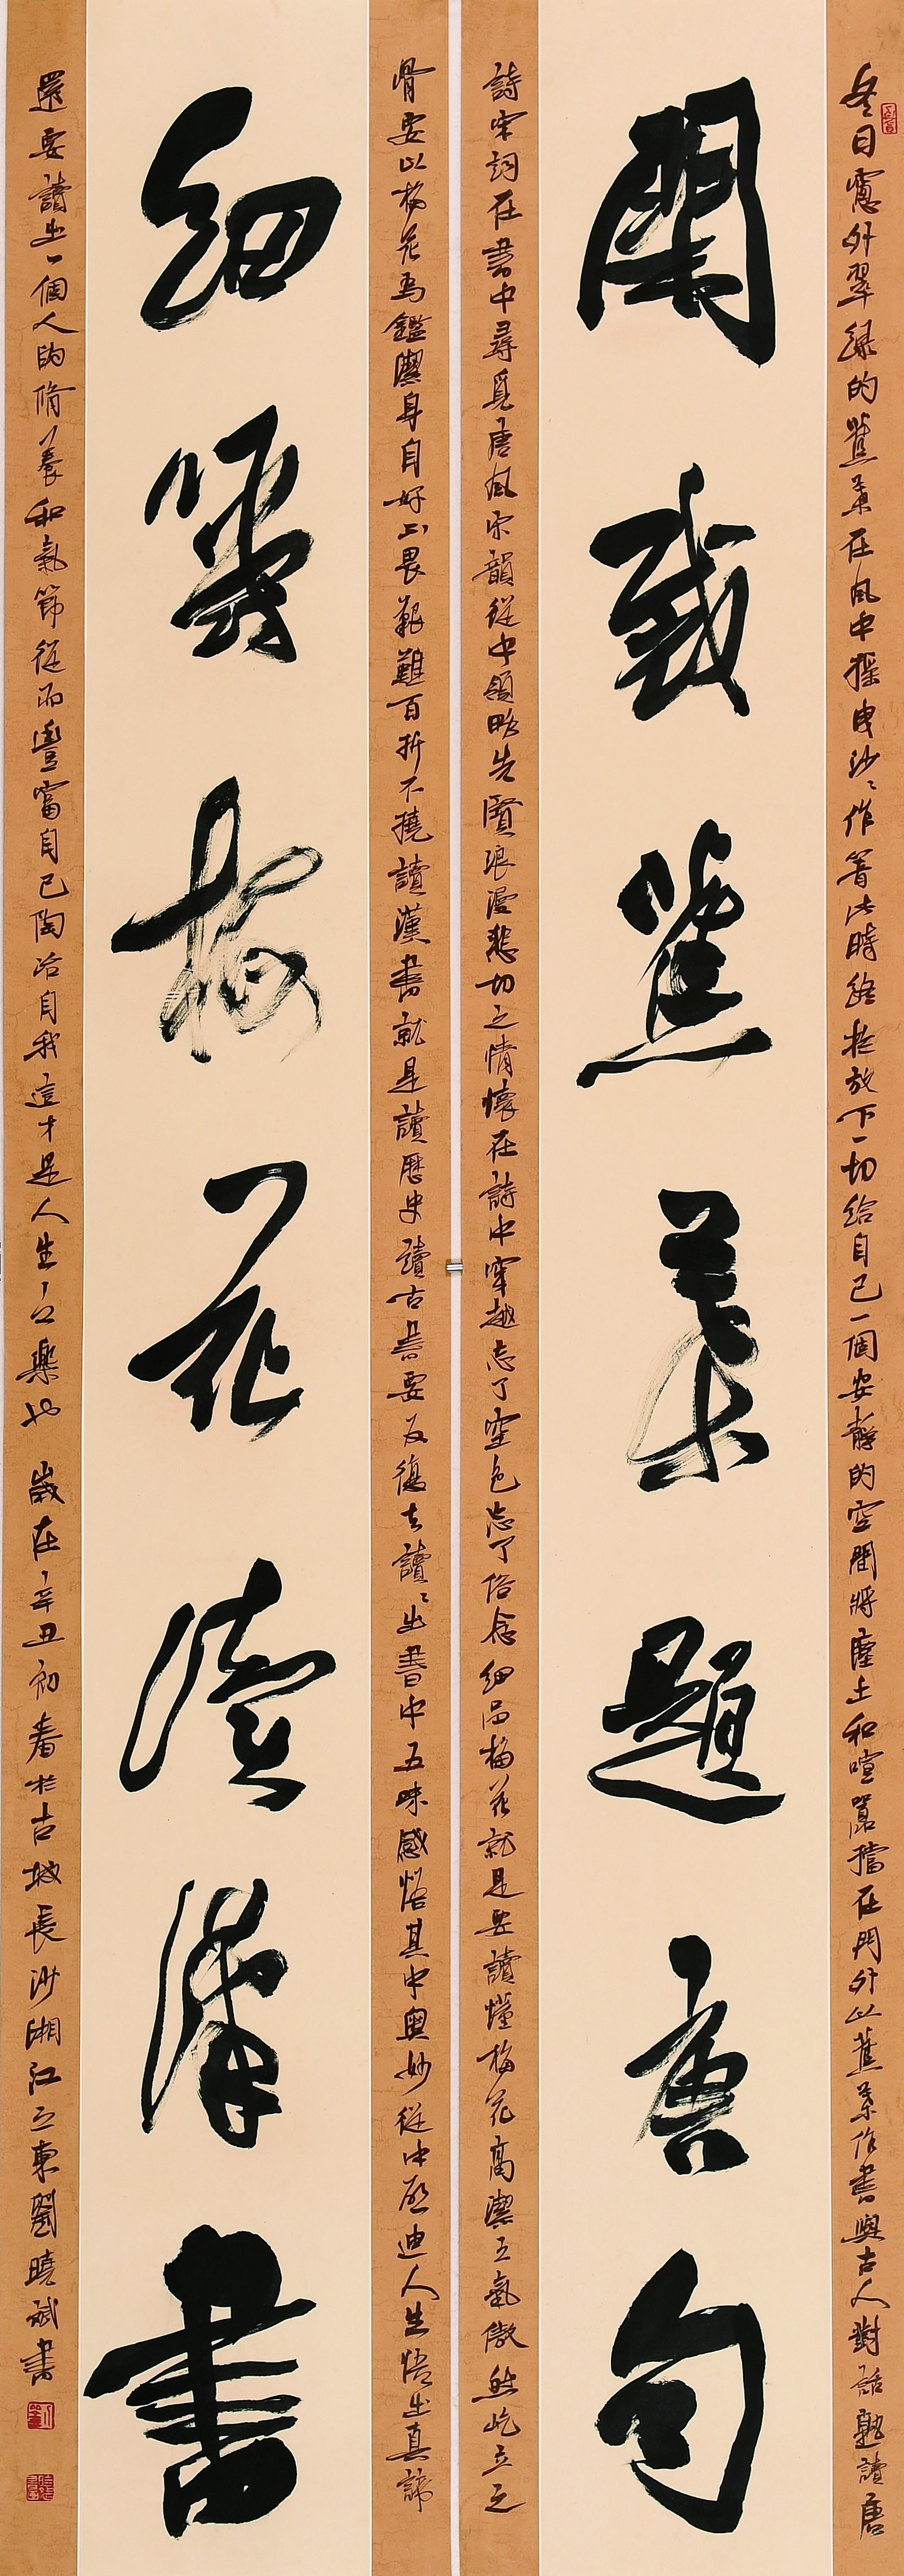 閑裁蕉葉題唐句
細嚼梅花讀漢書
冬日窗外翠綠的蕉葉在風中搖曳沙沙作響此時終於放下一切給自己一個安靜的空間將塵土和喧囂擋在門外以蕉葉作書與古人對話熟讀唐
詩宋詞在書中尋覓唐風宋韻從中領略先賢浪漫悲切之情懷在詩中穿越忘了空色忘了俗念細品梅花就是要讀懂梅花高潔之氣傲然屹立之
骨要以梅花為鑑潔身自好不畏艱難百折不撓讀漢書就是讀歷史讀古書要反復去讀讀出書中五味感悟其中奧妙從中啟迪人生悟出真諦
還要讀出一個人的脩養和氣節從而豐富自己陶冶自我這才是人生之樂也 歲在辛丑初春於古城長沙湘江之東劉曉斌書